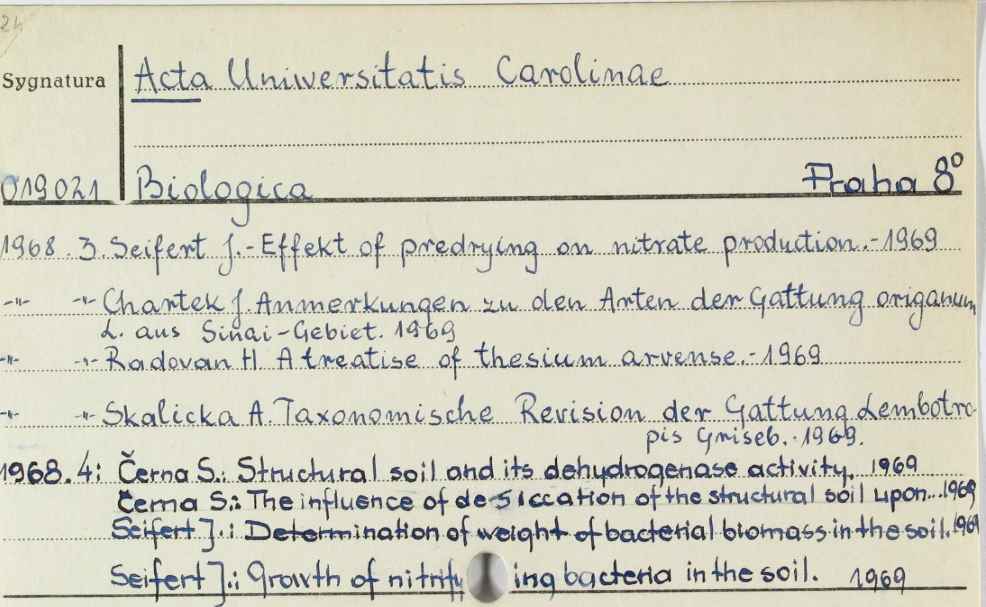 24
Sygnatura Acta Universitatis Carolinae
019021 Biologica Praha 8°
1968. 3. Seifert J.-Effekt of predrying on nitrate production.-1969
-"- -"- Chartek J. Anmerkungen zu den Arten der Gattung origanum
L. aus Sinai-Gebiet. 1969
-"- -"- Radovan H. A treatise of thesium arvense.-1969
-"- -"- Skalicka A. Taxonomische Revision der Gattung Lembotro
pis Griseb.-1969.
1968.4: Černa S.: Structural soil and its dehydrogenase activity. 1969
Černa S.: The influence of desiccation of the structural soil upon...1969
Seifert J.: Determination of weight of bacterial biomass in the soil. 1969
Seifert J.: Growth of nitrifying bacteria in the soil. 1969